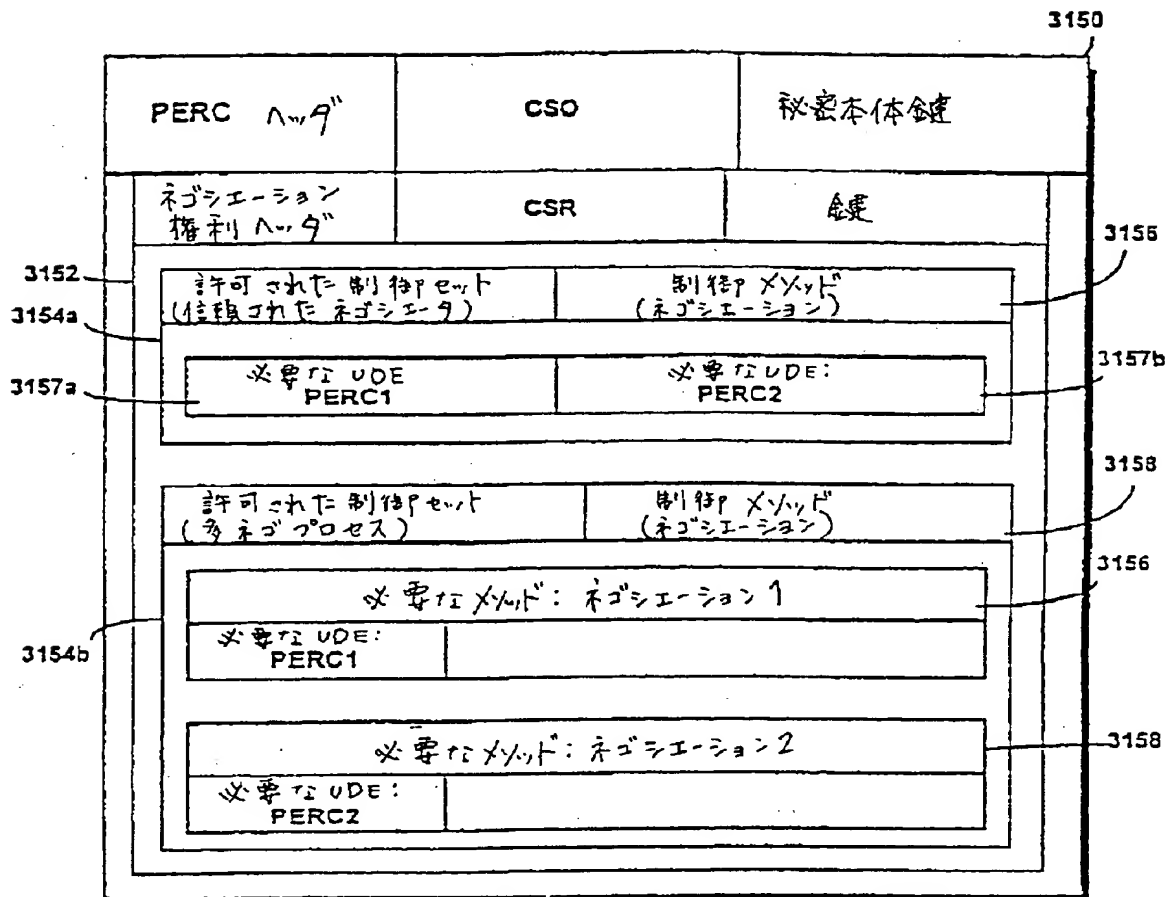 3150
PERC ヘッダ
CSO
秘密本体鍵
ネゴシエーション
権利ヘッダ
CSR
鍵
3155
3152
許可された制御セット
(信頼されたネゴシエータ)
制御メソッド
(ネゴシエーション)
3154a
必要なUDE
PERC1
必要なUDE:
PERC2
3157b
3157a
3158
許可された制御セット
(多ネゴプロセス)
制御メソッド
(ネゴシエーション)
3156
必要なメソッド: ネゴシエーション1
必要なUDE:
PERC1
3154b
必要なメソッド: ネゴシエーション2
3158
必要なUDE:
PERC2